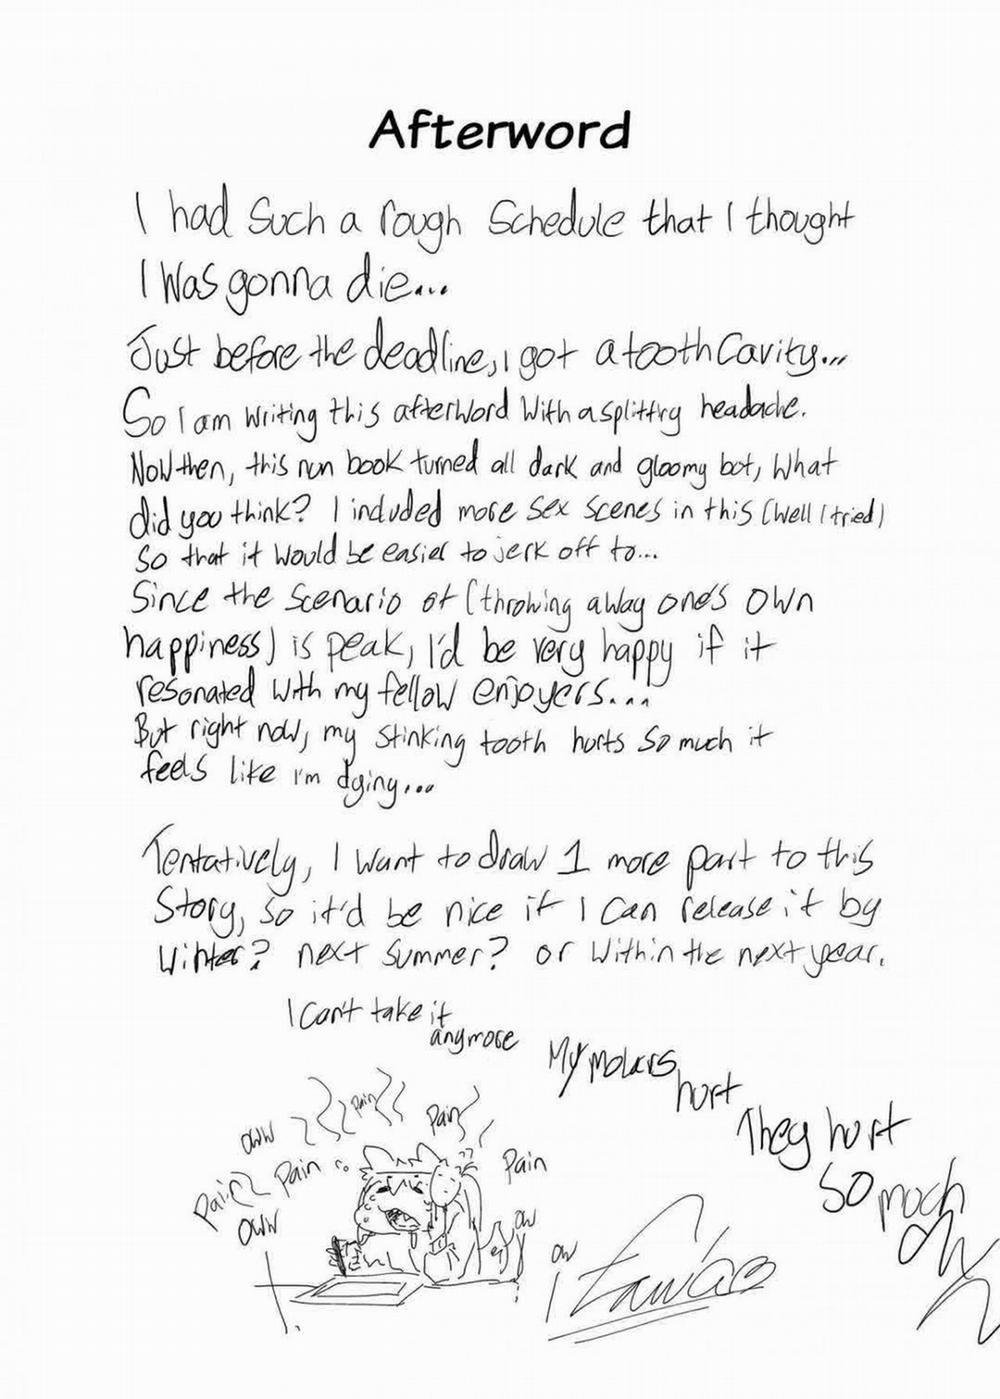 Afterword
I had Such a rough Schedule that I thought
I Was gonna die...
Just before the deadline, I got a tooth Cavity...
So I am writing this afterword with a splitting headache.
Now then, this nun book turned all dark and gloomy but, What
did you think? I included more sex scenes in this (Well I tried)
So that it would be easier to jerk off to...
Since the Scenario of (throwing away one's own
happiness) is peak, I'd be very happy if it
resonated with my fellow enjoyers...
But right now, my stinking tooth hurts so much it
feels like I'm dying...
Tentatively, I want to draw 1 more part to this
Story, so it'd be nice if I can release it by
winter? next summer? or within the next year.
I can't take it
anymore
My molars
hurt
They hurt
So much
OW
Pain
Pain
Pain
OWW
Pain
Pain
OWW
OW
OW